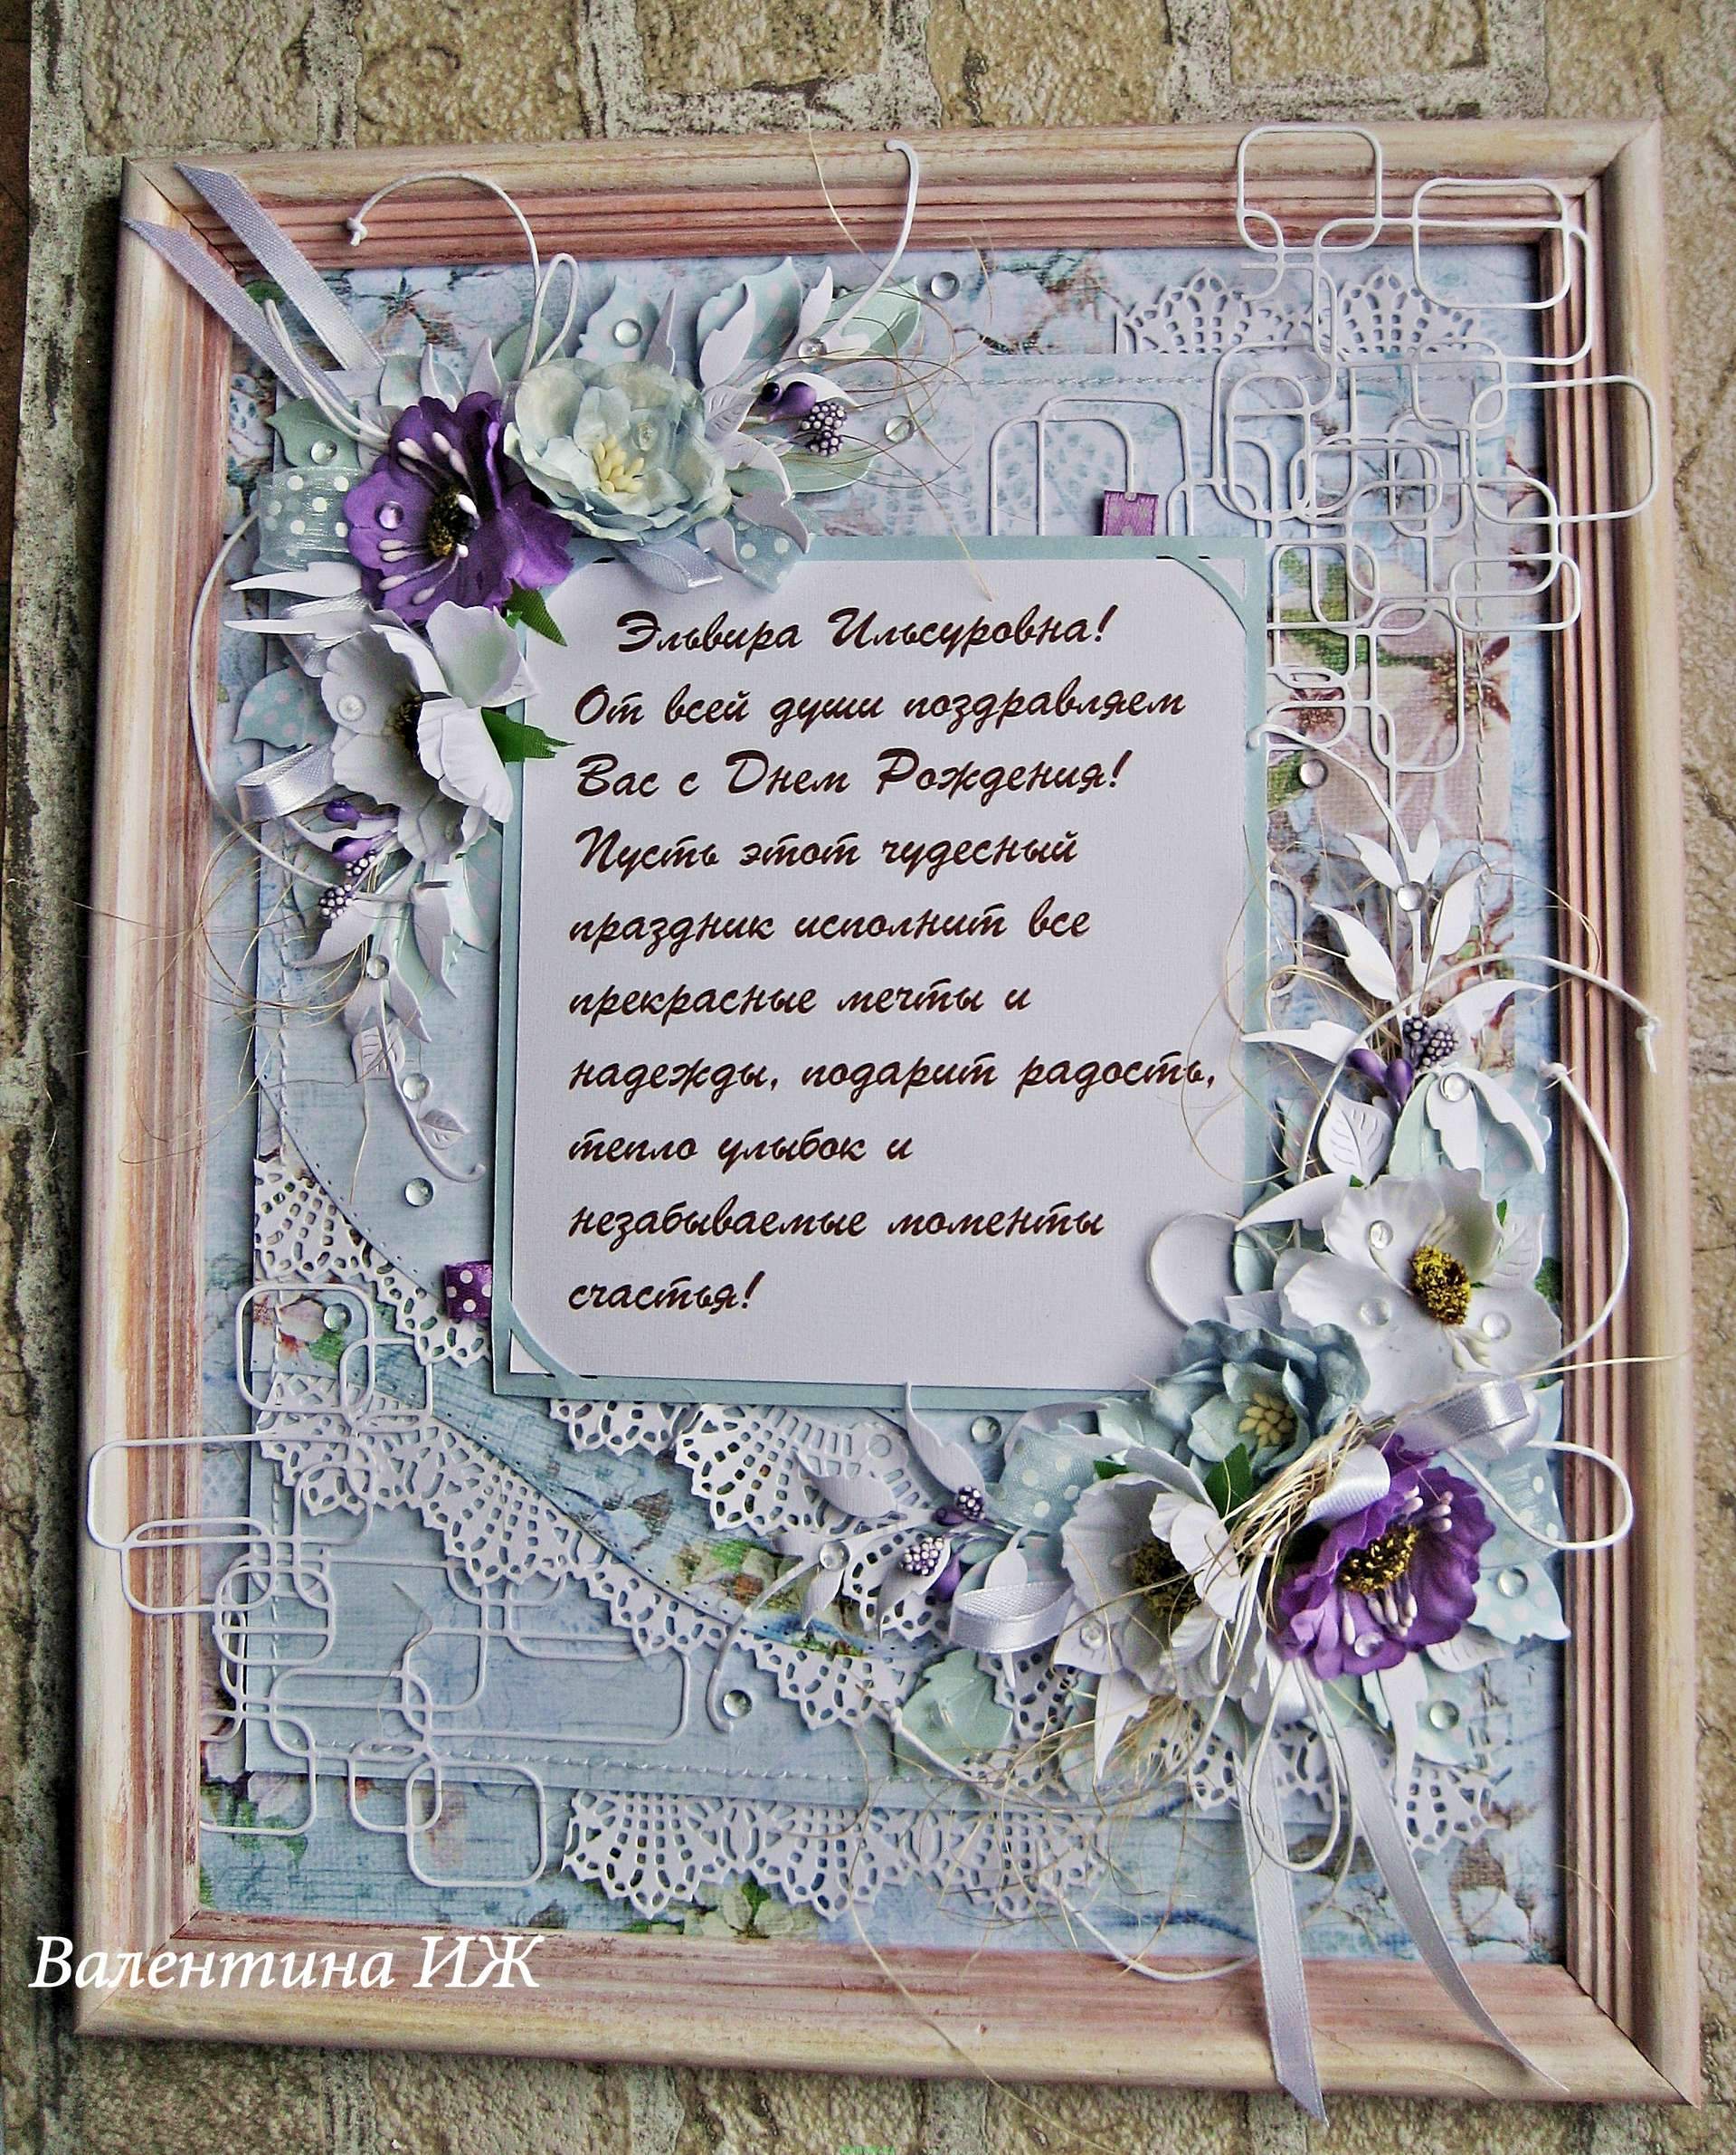 Эльвира Ильсуровна!
От всей души поздравляем
Вас с Днем Рождения!
Пусть этот чудесный
праздник исполнит все
прекрасные мечты и
надежды, подарит радость,
тепло улыбок и
незабываемые моменты
счастья!
Валентина ИЖ